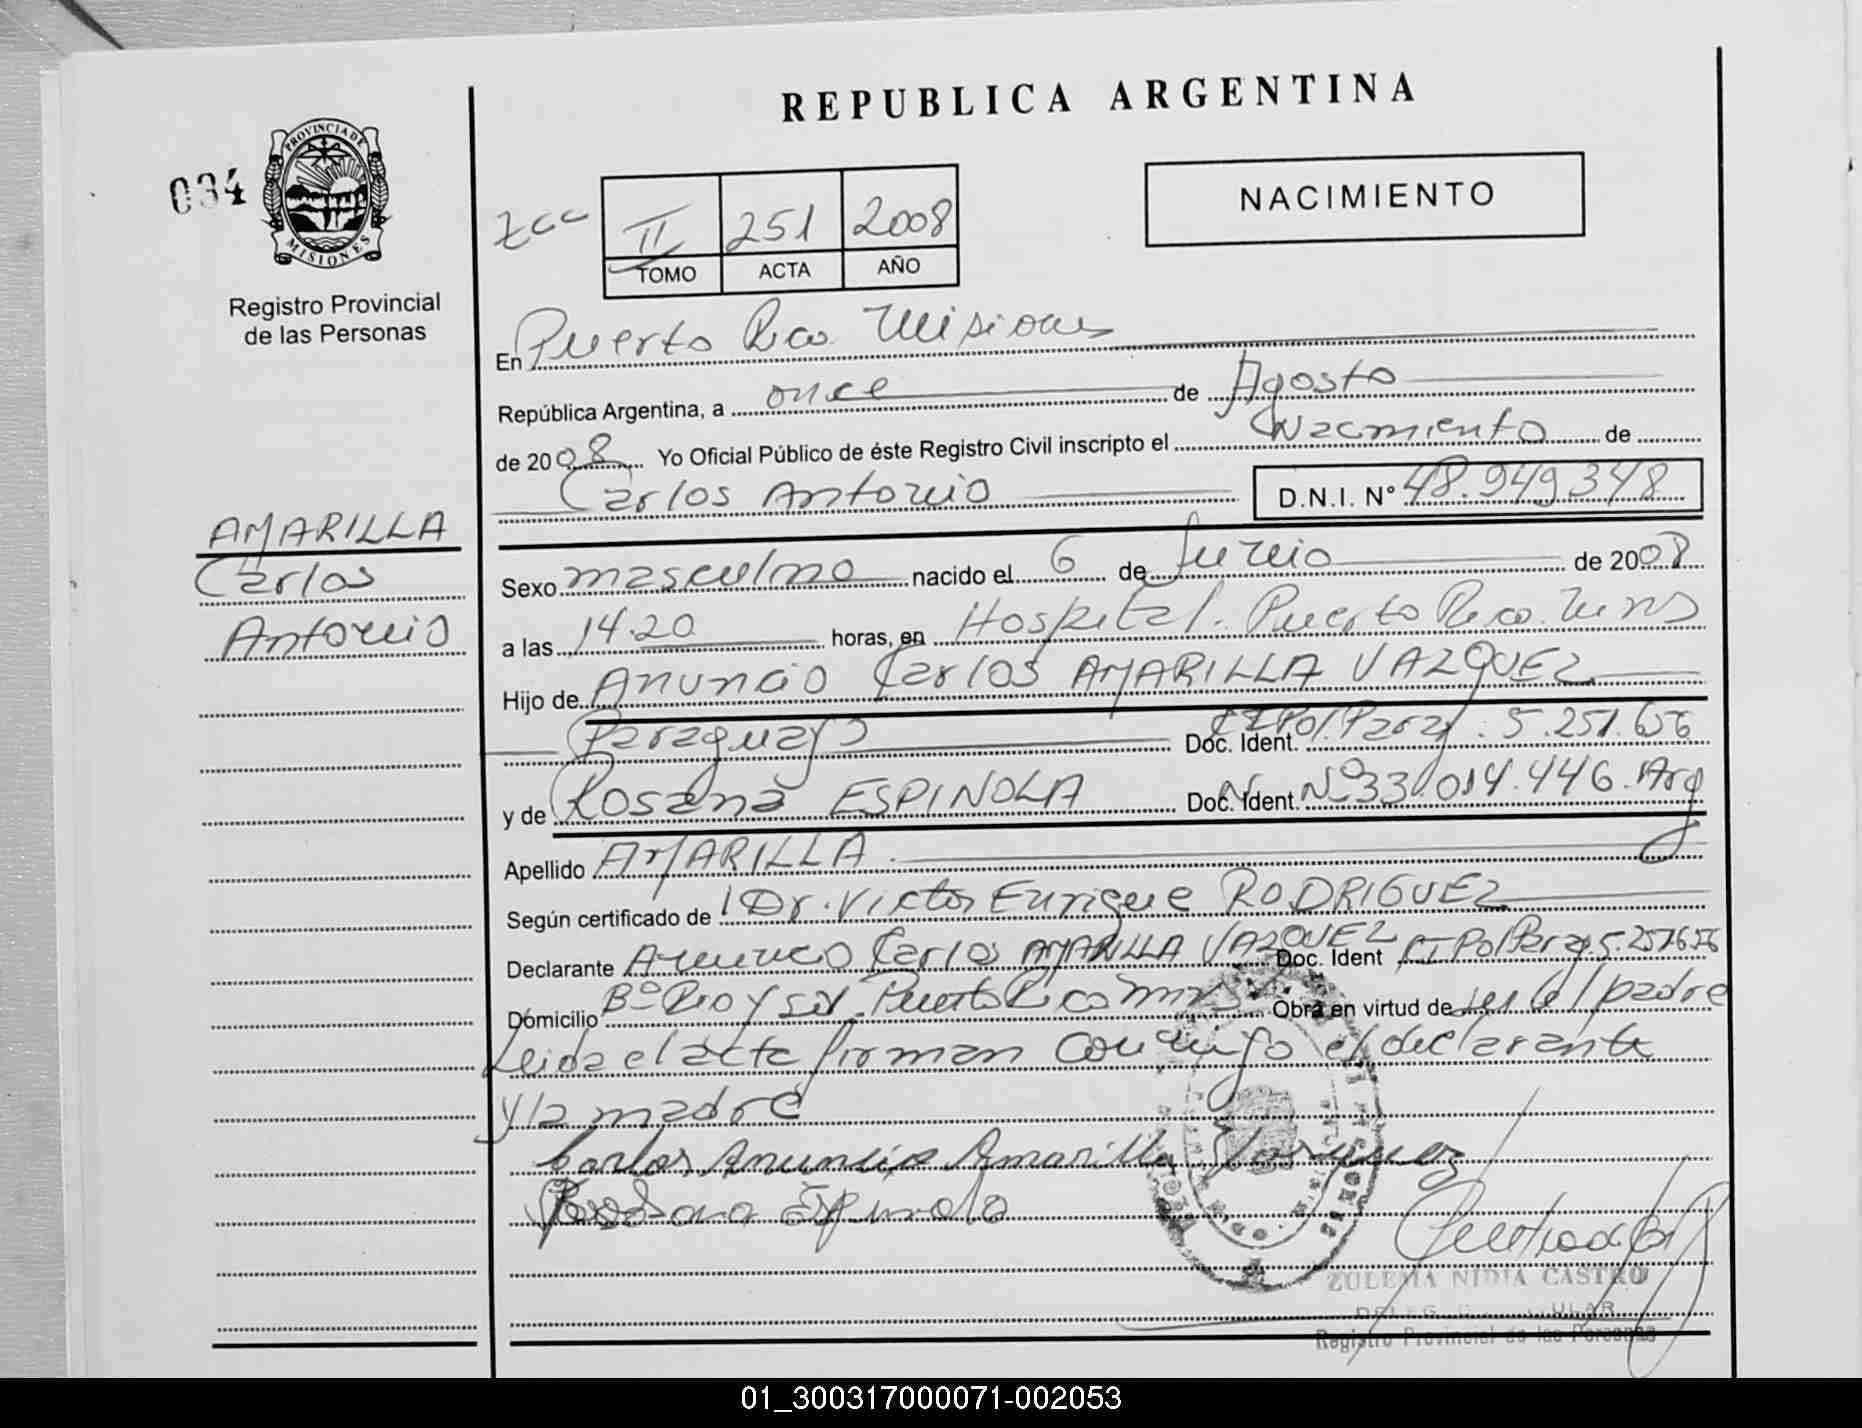 REPUBLICA ARGENTINA
034
PROVINCIA DE
MISIONES
Registro Provincial
de las Personas
II 251 2008
TOMO ACTA AÑO
NACIMIENTO
En Puerto Rico Misiones
República Argentina, a once de Agosto
de 2008 Yo Oficial Público de éste Registro Civil inscripto el Nacimiento de
Carlos Antonio D.N.I. Nº 48.949.348
AMARILLA
Carlos
Antonio
Sexo masculino nacido el 6 de Junio de 2008
a las 14.20 horas, en Hospital. Puerto Rico. Mnes
Hijo de Anuncio Carlos AMARILLA VAZQUEZ
Paraguayo Doc. Ident. CI Pol. Paray. 5.251.656
y de Rosana ESPINOLA Doc. Ident. Nº 33.014.446. Arg
Apellido AMARILLA
Según certificado de Dr. Victor Enrique RODRIGUEZ
Declarante Anuncio Carlos AMARILLA VAZQUEZ Doc. Ident CI Pol Paray. 5.251656
Domicilio Bº Rio y sol Puerto Rico Mnes Obra en virtud de ser el padre
Leida el acta firman conmigo el declarante
y la madre
Carlos Anuncio Amarilla Vasquez
Rossana Espinola
ZULEMA NIDIA CASTRO
Registro Provincial de las Personas
01_300317000071-002053